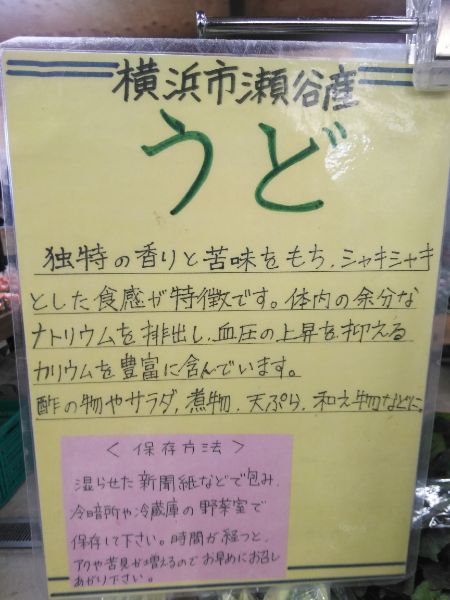 横浜市瀬谷産
うど
独特の香りと苦味をもち、シャキシャキ
とした食感が特徴です。体内の余分な
ナトリウムを排出し、血圧の上昇を抑える
カリウムを豊富に含んでいます。
酢の物やサラダ、煮物、天ぷら、和え物などに。
＜保存方法＞
湿らせた新聞紙などで包み、
冷暗所や冷蔵庫の野菜室で
保存して下さい。時間が経つと、
アクや苦見が増えるのでお早めにお召し
あがり下さい。